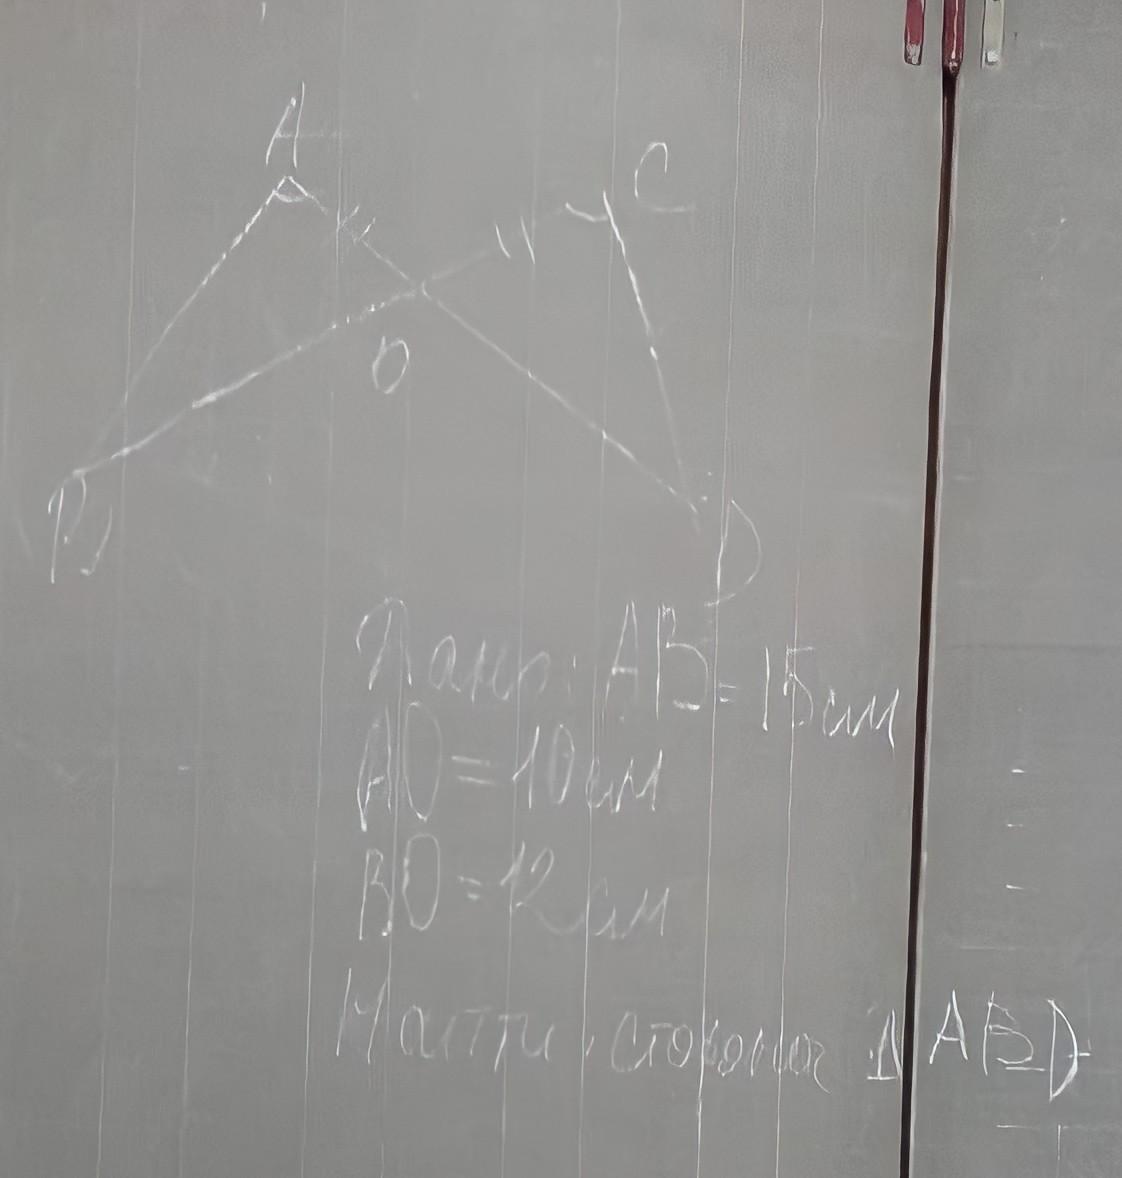 A
C
O
B
D
Дано: AB = 15 см
AO = 10 см
BO = 12 см
Найти: стороны Δ ABD